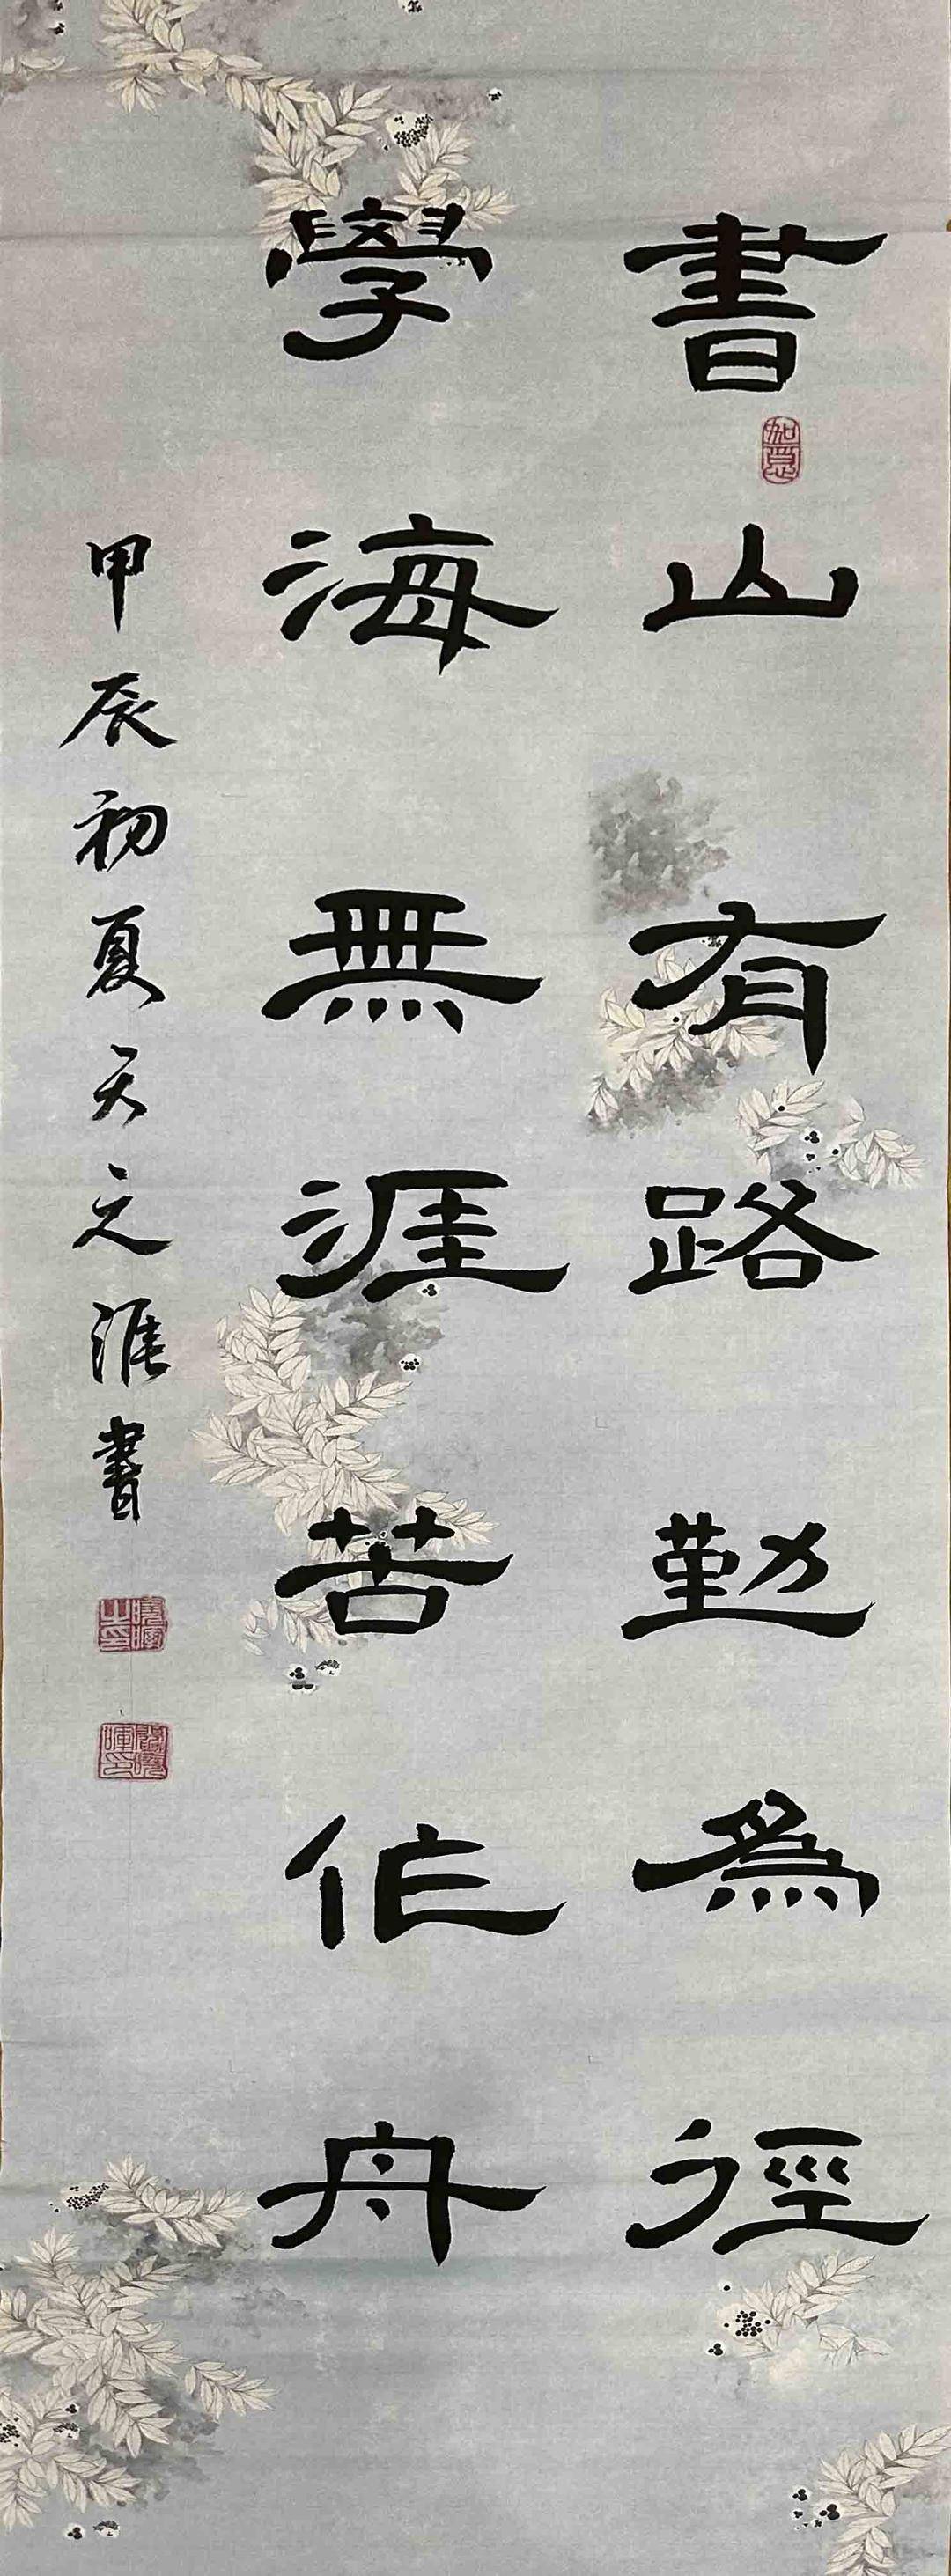 書山有路勤為徑
學海無涯苦作舟
甲辰初夏天之涯書
如意